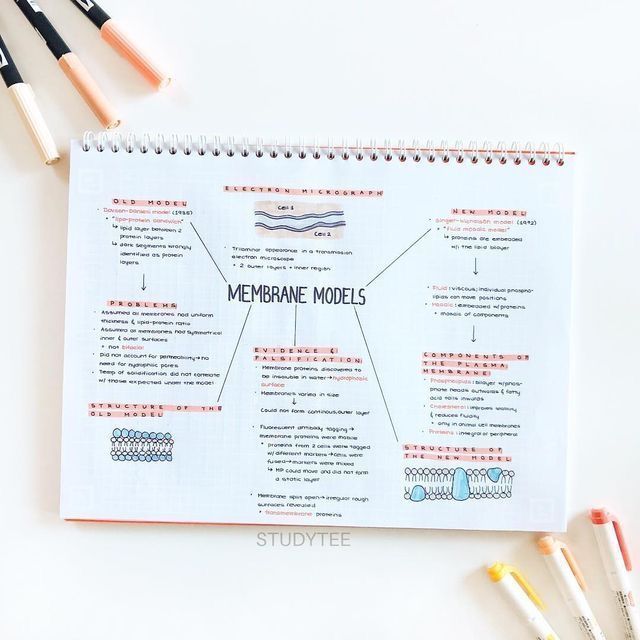 ELECTRON MICROGRAPH
Cell 1
Cell 2
Trilaminar appearance in a transmission
electron microscope
• 2 outer layers + inner region
OLD MODEL
• Davson-Danielli model (1935)
• "lipo-protein sandwich"
↳ lipid layer between 2
protein layers
↳ dark segments wrongly
identified as protein
layers
PROBLEMS
• Assumed all membranes had uniform
thickness & lipid-protein ratio
• Assumed all membranes had symmetrical
inner & outer surfaces
• not bifacial
• Did not account for permeability → no
need for hydrophilic pores
• Temp of solidification did not correlate
w/ those expected under the model
STRUCTURE OF THE
OLD MODEL
MEMBRANE MODELS
EVIDENCE &
FALSIFICATION
• Membrane proteins discovered to
be insoluble in water → hydrophobic
surface
• Membranes varies in size
Could not form continuous outer layer
• Fluorescent antibody tagging →
membrane proteins were mobile
• proteins from 2 cells were tagged
w/ different markers → cells were
fused → markers were mixed
↳ MP could move and did not form
a static layer
• Membrane split open → irregular rough
surfaces revealed
• transmembrane proteins
NEW MODEL
• Singer-Nicholson model (1972)
• "fluid mosaic model"
↳ proteins are embedded
w/ the lipid bilayer
Fluid : viscous; individual phospho-
lipids can move positions
Mosaic : embedded w/ proteins
• mosaic of components
COMPONENTS OF
THE PLASMA
MEMBRANE
• Phospholipids : bilayer w/ phos-
phate heads outwards & fatty
acid tails inwards
• Cholesterol : improves stability
& reduces fluidity
• only in animal cell membranes
• Proteins : integral or peripheral
STRUCTURE OF
THE NEW MODEL
STUDYTEE